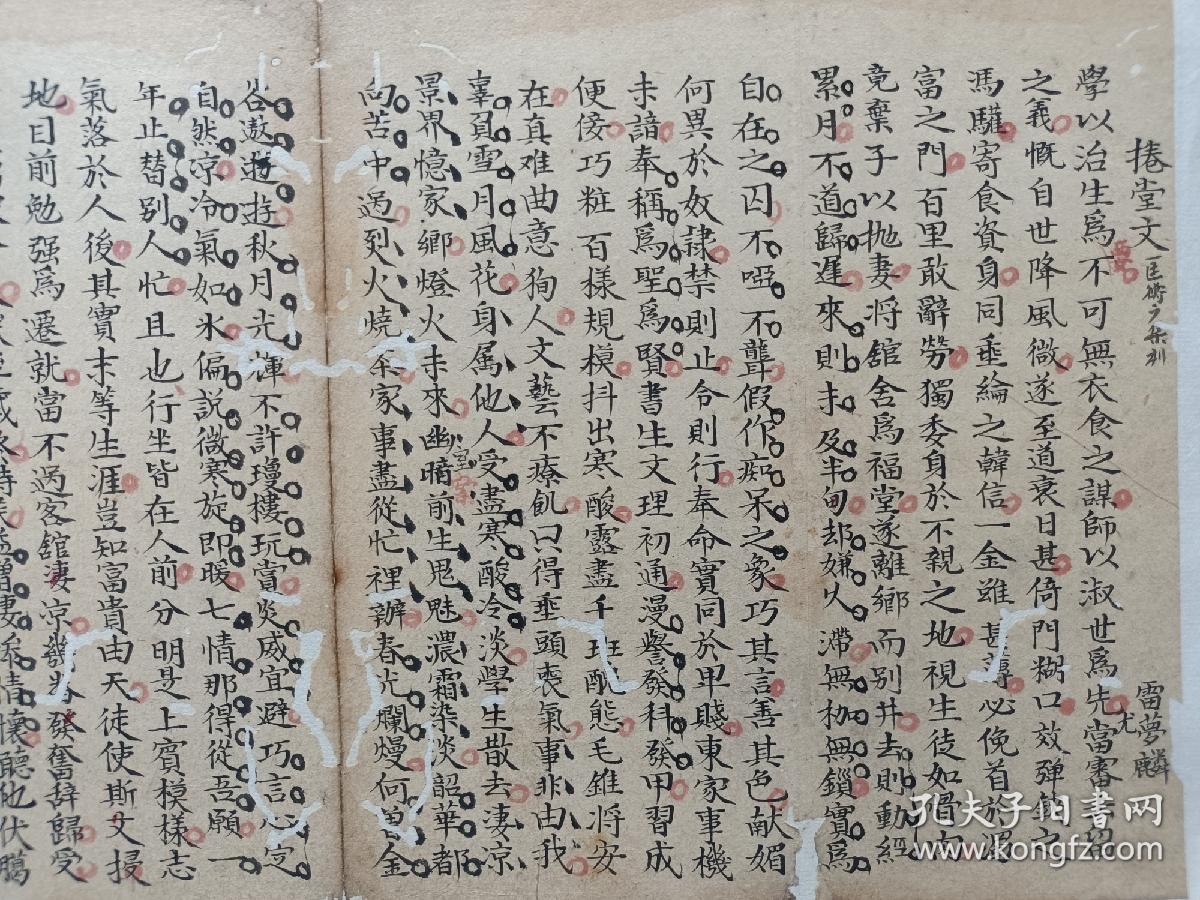 捲堂文
雷夢麟
學以治生爲不可無衣食之謀師以淑世爲先當審
之義慨自世降風微遂至道衰日甚倚門糊口效彈鋏之
馮驩寄食資身同垂綸之韓信一金雖甚薄必俛首於
富之門百里敢辭勞獨委身於不親之地視生徒如骨肉
竟棄子以拋妻將舘舍爲福堂遂離鄉而别井去則動經
累月不道歸遲來則未及半旬却嫌久滯無枷無鎖實爲
自在之囚不啞不聾假作痴呆之象巧其言善其色献媚
何異於奴隷禁則止令則行奉命實同於卑賤東家事機
未諳奉稱爲聖爲賢書生文理初通漫譽發科發甲習成
便佞巧粧百樣規模抖出寒酸露盡千班醜態毛錐將安
在真难曲意狥人文藝不療飢只得垂頭喪氣事非由我
辜負雪月風花身属他人受盡寒酸冷淡學生散去凄凉
景界憶家鄉燈火未來幽暗前生鬼魅濃霜染淡韶華都
向苦中過到火燒奈家事盡從忙裡辦春光爛熳何曾金
谷遨遊秋月光輝不許瓊樓玩賞炎威宜避巧言心定
自然凉冷氣如氷偏説微寒旋即暖七情那得從吾願一
年止替别人忙且也行坐皆在人前分明是上賓模樣志
氣落於人後其實末等生涯豈知富貴由天徒使斯文掃
地目前勉强爲遷就當不過客舘凄凉發奮辞歸受
情懷聽他伏臘
孔夫子旧書网
www.kongfz.com